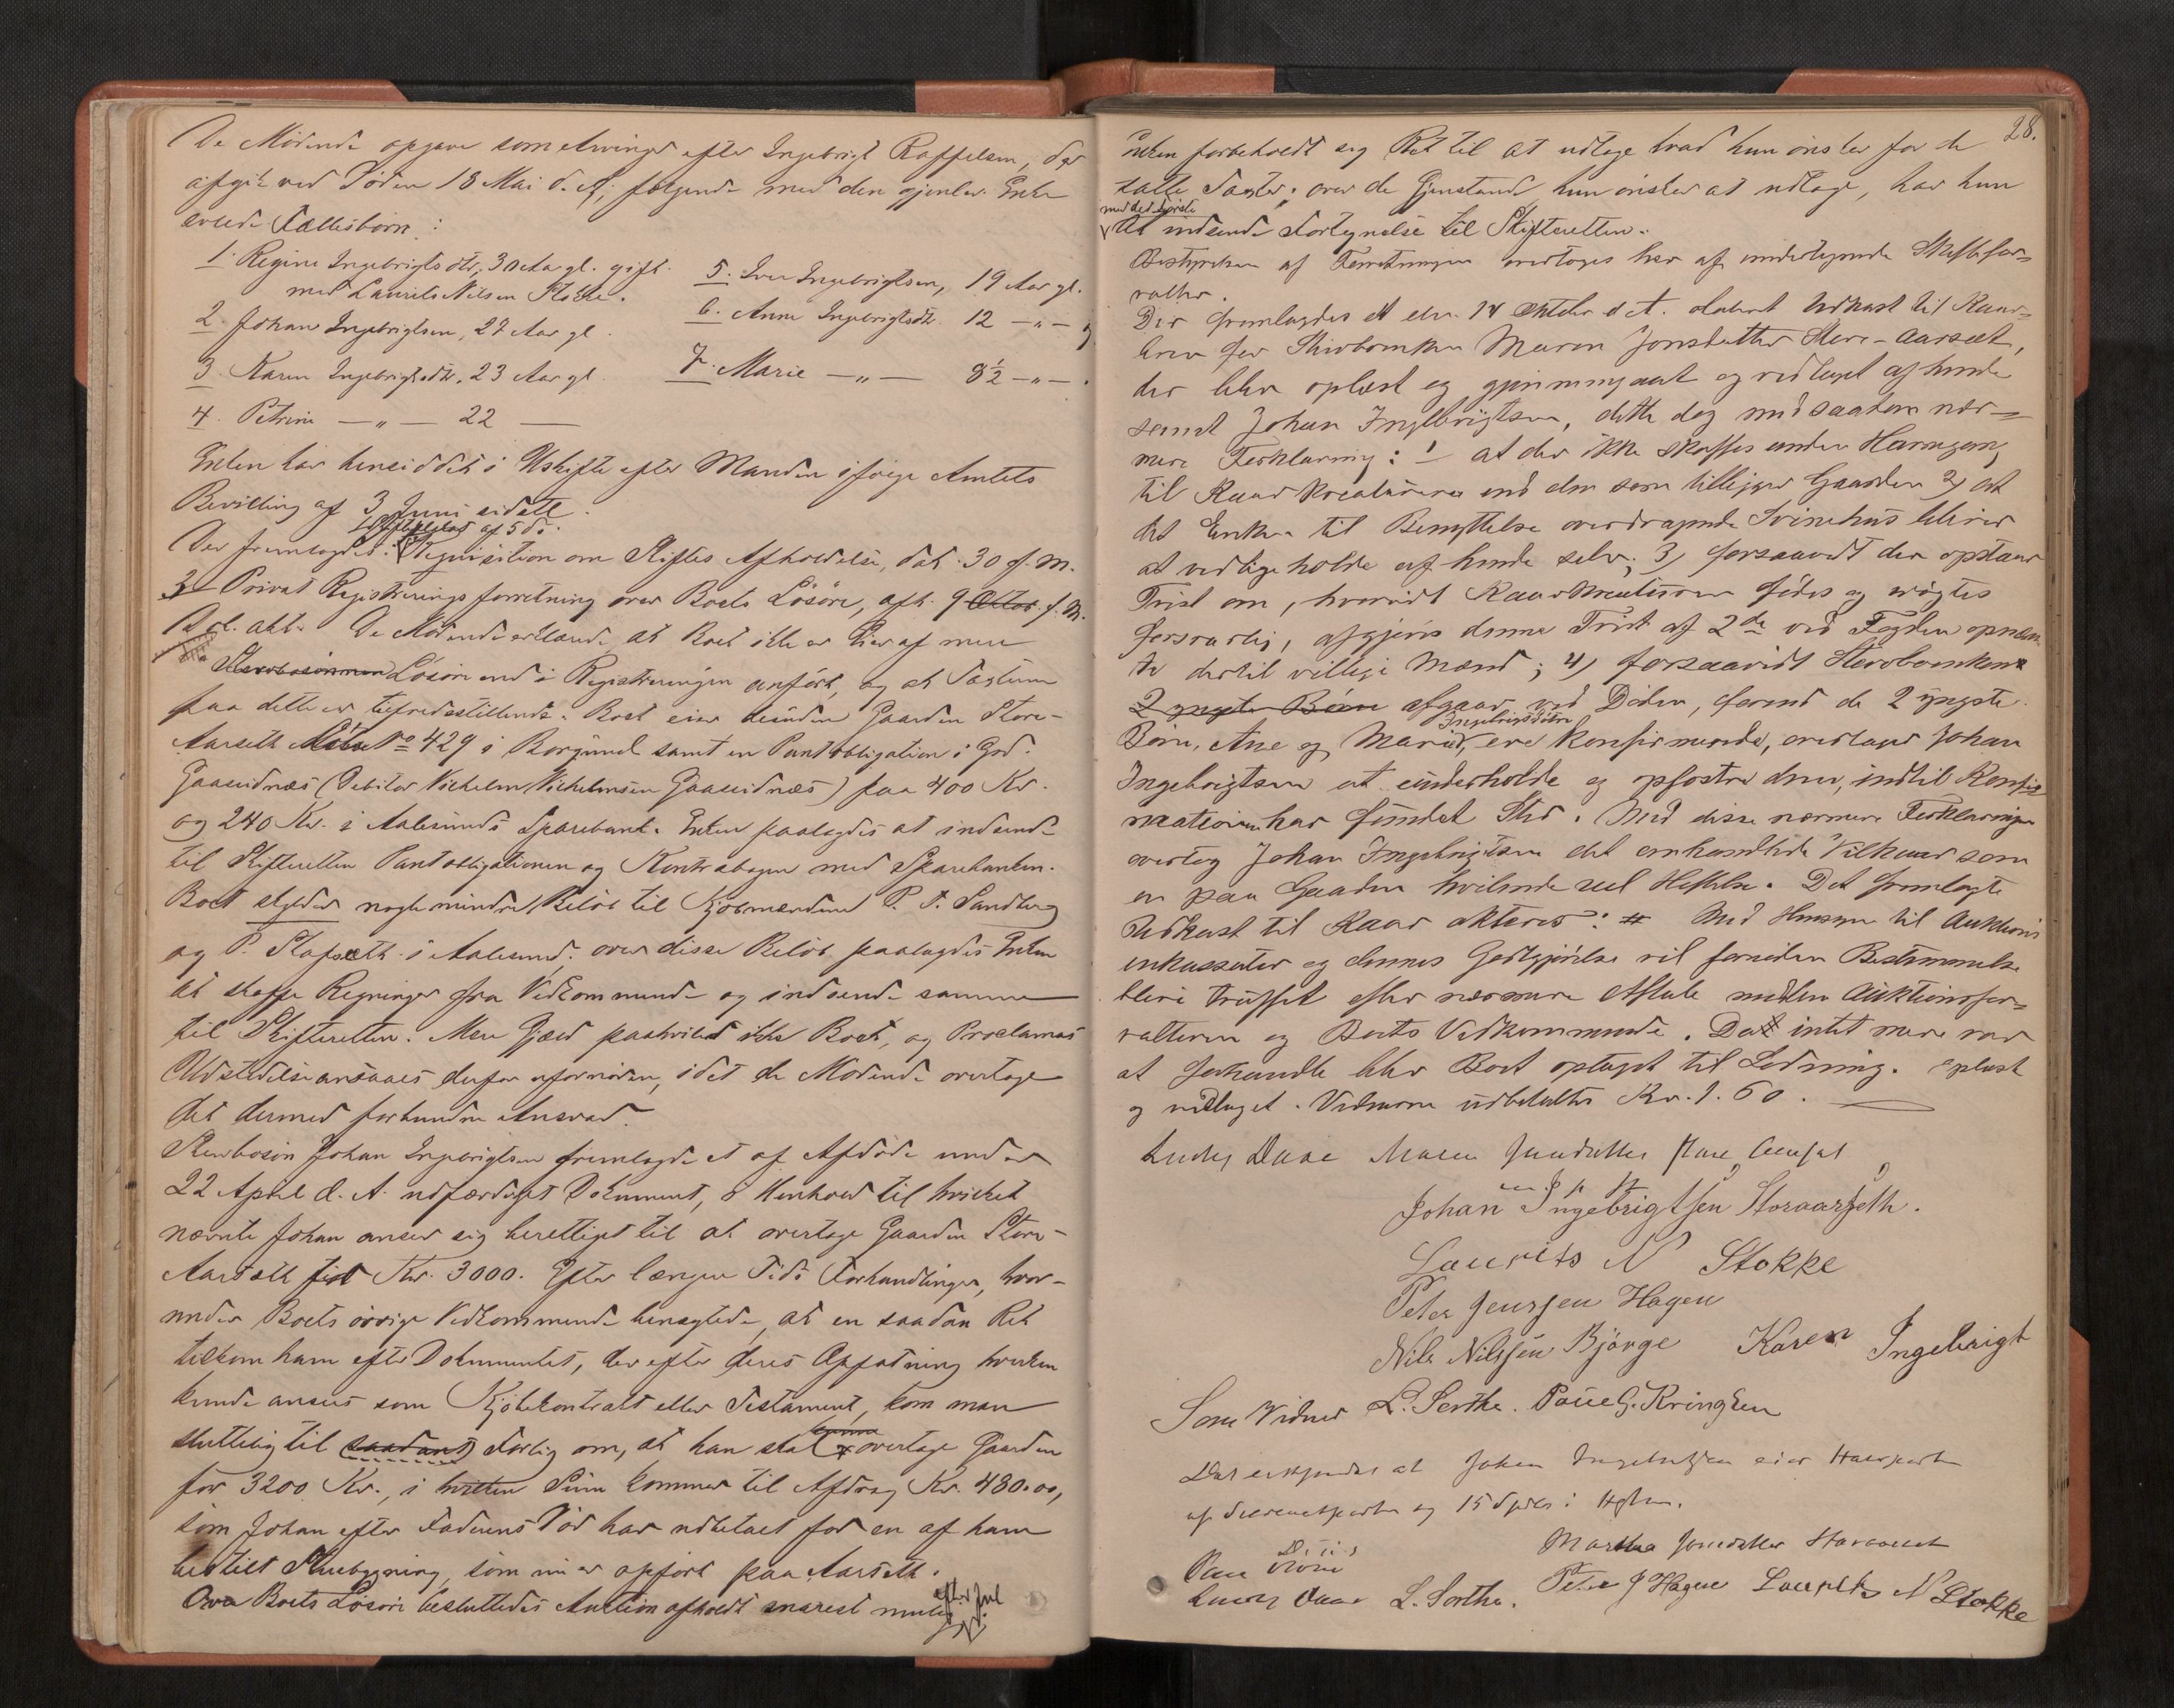 De Mødende opgave som Arvinger efter Ingebrigt Raffelsen, der
afgik ved Døden 18 Mai d. A., følgende med den gjenlev. Enke
avlede Fællesbørn:
1. Regine Ingebrigtsdtr, 30 Aar gl. gift
med Laurits Nilsen Stokke.
2. Johan Ingebrigtsen, 27 Aar gl.
3. Karen Ingebrigtsdtr. 23 Aar gl.
4. Petrine —„— 22 —
5. Iver Ingebrigtsen, 19 Aar gl.
6. Anne Ingebrigtsdtr. 12 —„— og
7. Marie —„— 8½ —„— .
Enken har hensiddet i Uskifte efter Manden ifølge Amtets
Bevilling af 3 Juni sidstl.
af 5 ds.
Der fremlagdes: Requisition om Skiftes Afholdelse, dat. 30 f. M.
3 Privat Registreringsforretning over Boets Løsøre, afh. 9 Oktob. f. M.
akt. De Mødende erklærede, at Boet ikke er Eier af mere
Løsøre end i Registreringen anført, og at Taxterne
paa dette er tilfredsstillende. Boet eier desuden Gaarden Store-
Aarseth No 429 i Borgund samt en Pantobligation i Grd.
Gaaseidnæs (Debitor Vilhelm Vilhelmsen Gaaseidnæs) paa 400 Kr.
og 240 Kr. i Aalesunds Sparebank. Enken paalagdes at indsende
til Skifteretten Pantobligationen og Kontrabogen med Sparebanken.
Boet skylder nogle mindre Beløb til Kjøbmændene P. F. Sandberg
og P. Stafseth i Aalesund; over disse Beløb paalagdes Enken
at skaffe Regninger fra Vedkommende og indsende samme
til Skifteretten. Mere Gjæld paahviled ikke Boet, og Proclamas
Udstedelse ansaaes derfor ufornøden, idet de Mødende overtage
det dermed forbundne Ansvar.
Stervbosøn Johan Ingebrigtsen fremlagde et af Afdøde under
22 April d. A. udfærdiget Dokument, i Henhold til hvilket
nævnte Johan anser sig berettiget til at overtage Gaarden Store-
Aarseth for Kr. 3000. Efter længere Tids Forhandlinger, hvor-
under Boets øvrige Vedkommende benægtede, at en saadan Ret
tilkom ham efter Dokumentet, der efter deres Opfatning hverken
kunde ansees som Kjøbekontrakt eller Testament, kom man
kunne
sluttelig til saadant Forlig om, at han skal overtage Gaarden
for 3200 Kr., i hvilken Sum kommer til Afdrag Kr. 480.00,
som Johan efter Faderens Død har udbetalt for en af ham
bestilt Stuebygning, som nu er opført paa Aarseth.
Over Boets Løsøre besluttedes Auktion afholdt snarest mulig
eft. Jul
28.
Enken forbeholdt sig Ret til at udtage hvad hun ønsker for de
satte Taxter; over de Gjenstande, hun ønsker at udtage, har hun
med det første
at indsende Fortegnelse til Skifteretten.
Bestyrelsen af Forretningen overtoges her af undertegnede Skiftefor-
valter.
Der fremlagdes et den 14 Oktober d. A. dateret Udkast til Kaar-
brev for Stervboenken Maren Jonsdatter Store-Aarseth,
der blev oplæst og gjennemgaaet og vedtaget af hende
samt Johan Ingebrigtsen, dette dog med saadan nær-
mere Forklaring: 1 at der ikke skaffes anden Havnegang
til Kaarkreaturene end den som tilligger Gaarden 2) at
det Enken til Benyttelse overdragende Svinehus bliver
at vedligeholde af hende selv; 3) forsaavidt der opstaar
Tvist om, hvorvidt Kaarkreaturene fødes og røgtes
forsvarlig, afgjøres denne Tvist af 2de ved Fogden opnævn-
te dertil villige Mænd; 4) forsaavidt Stervboenken
2 yngste Børn afgaar ved Døden, forend de 2 yngste
Ingebrigtsdøtre
Børn, Ane og Marie, ere konfirmerede, overtager Johan
Ingebrigtsen at underholde og opfostre dem, indtil Konfir-
mationen har fundet Sted. Med disse nærmere Forklaringer
overtog Johan Ingebrigtsen det omhandlede Vilkaar som
en paa Gaarden hvilende reel Heftelse. Det fremlagte
Udkast til Kaar akteres: # Med Hensyn til Auktions
inkassator og dennes Godtgjørelse vil fornøden Bestemmelse
blive truffet efter nærmere Aftale mellem Auktionsfor-
valteren og Boets Vedkommende. Da intet mere var
at forhandle blev Boet optaget til Lodning. Oplæst
og vedtaget. Vidnerne udbetaltes Kr. 1.60.
Ludv Daae Maren Jonsdatter Store Aarset
m. f. P.
Johan Ingebrigtsen Storaarseth.
Laurits N Stokke
Peter Jenssen Hagen
Nils Nilssen Bjørge Karen Ingebrigt
Som Vidner L. Serthe. Poul G. Kringsen
Det erkjendes at Johan Ingebrigtsen eier Halvparten
af og 15
Martha Jonsdatter Storaarset
Ludv Daae L. Serthe. Peter J Hagen Laurits N Stokke